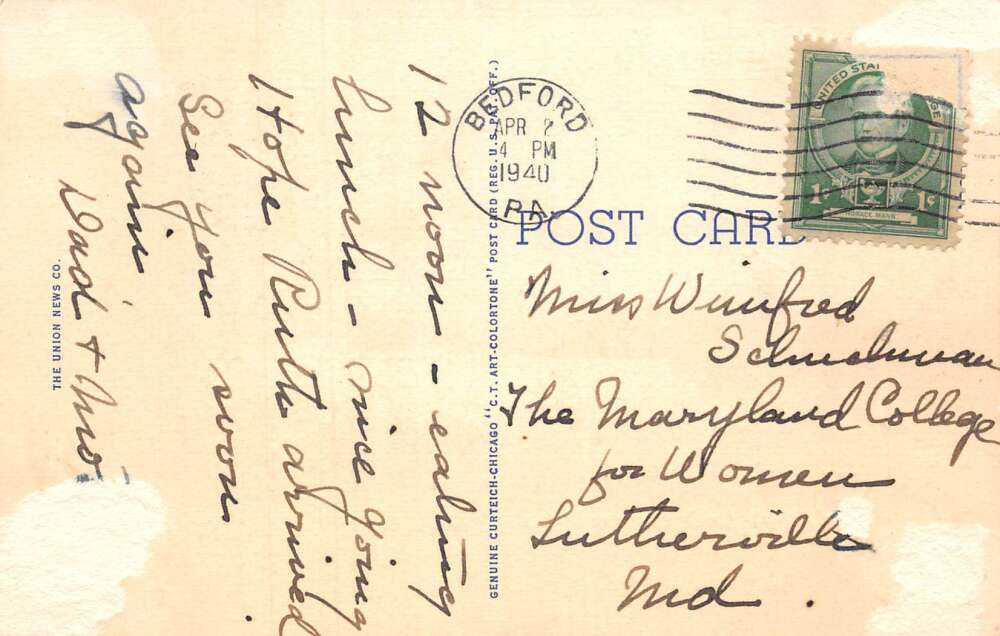 12 noon - eating
lunch - nice going
Hope Ruth arrived
See you soon
again
Dad + Mo
THE UNION NEWS CO.
GENUINE CURTEICH-CHICAGO "C.T. ART-COLORTONE" POST CARD (REG. U.S. PAT. OFF.)
BEDFORD
APR 2
4 PM
1940
PA
UNITED STA
1c 1c
HORACE MANN
POST CARD
Miss Winifred
The Maryland College
for Women
Lutherville
Md.